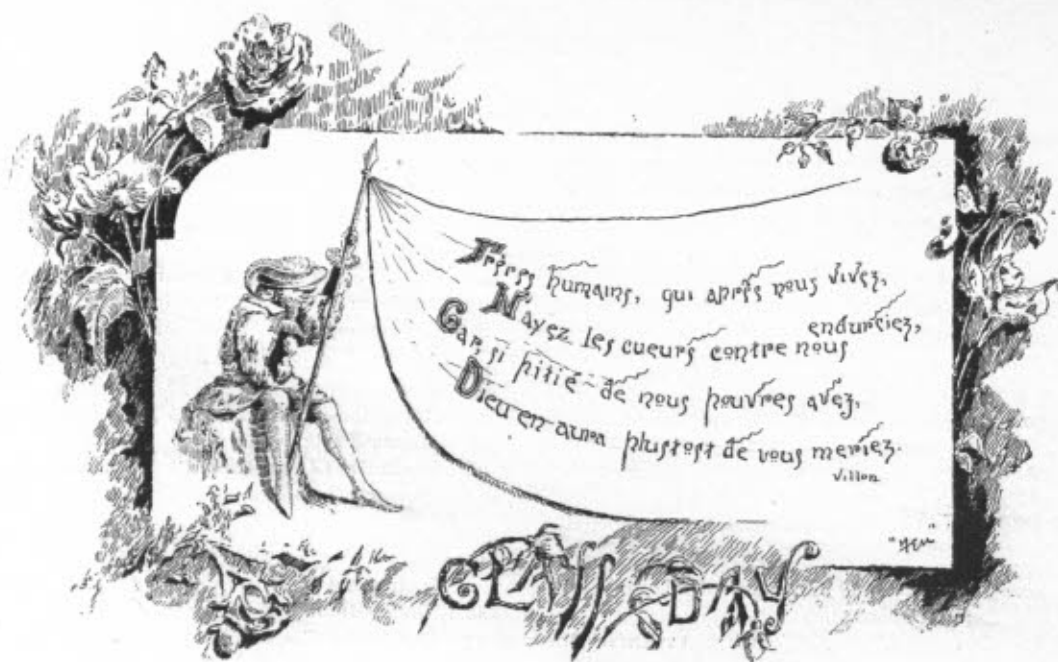 Frères humains, qui après nous vivez,
N'ayez les cueurs contre nous endurciez,
Car, si pitié de nous pouvres avez,
Dieu en aura plustost de vous merciez.
Villon
CLASS DAY